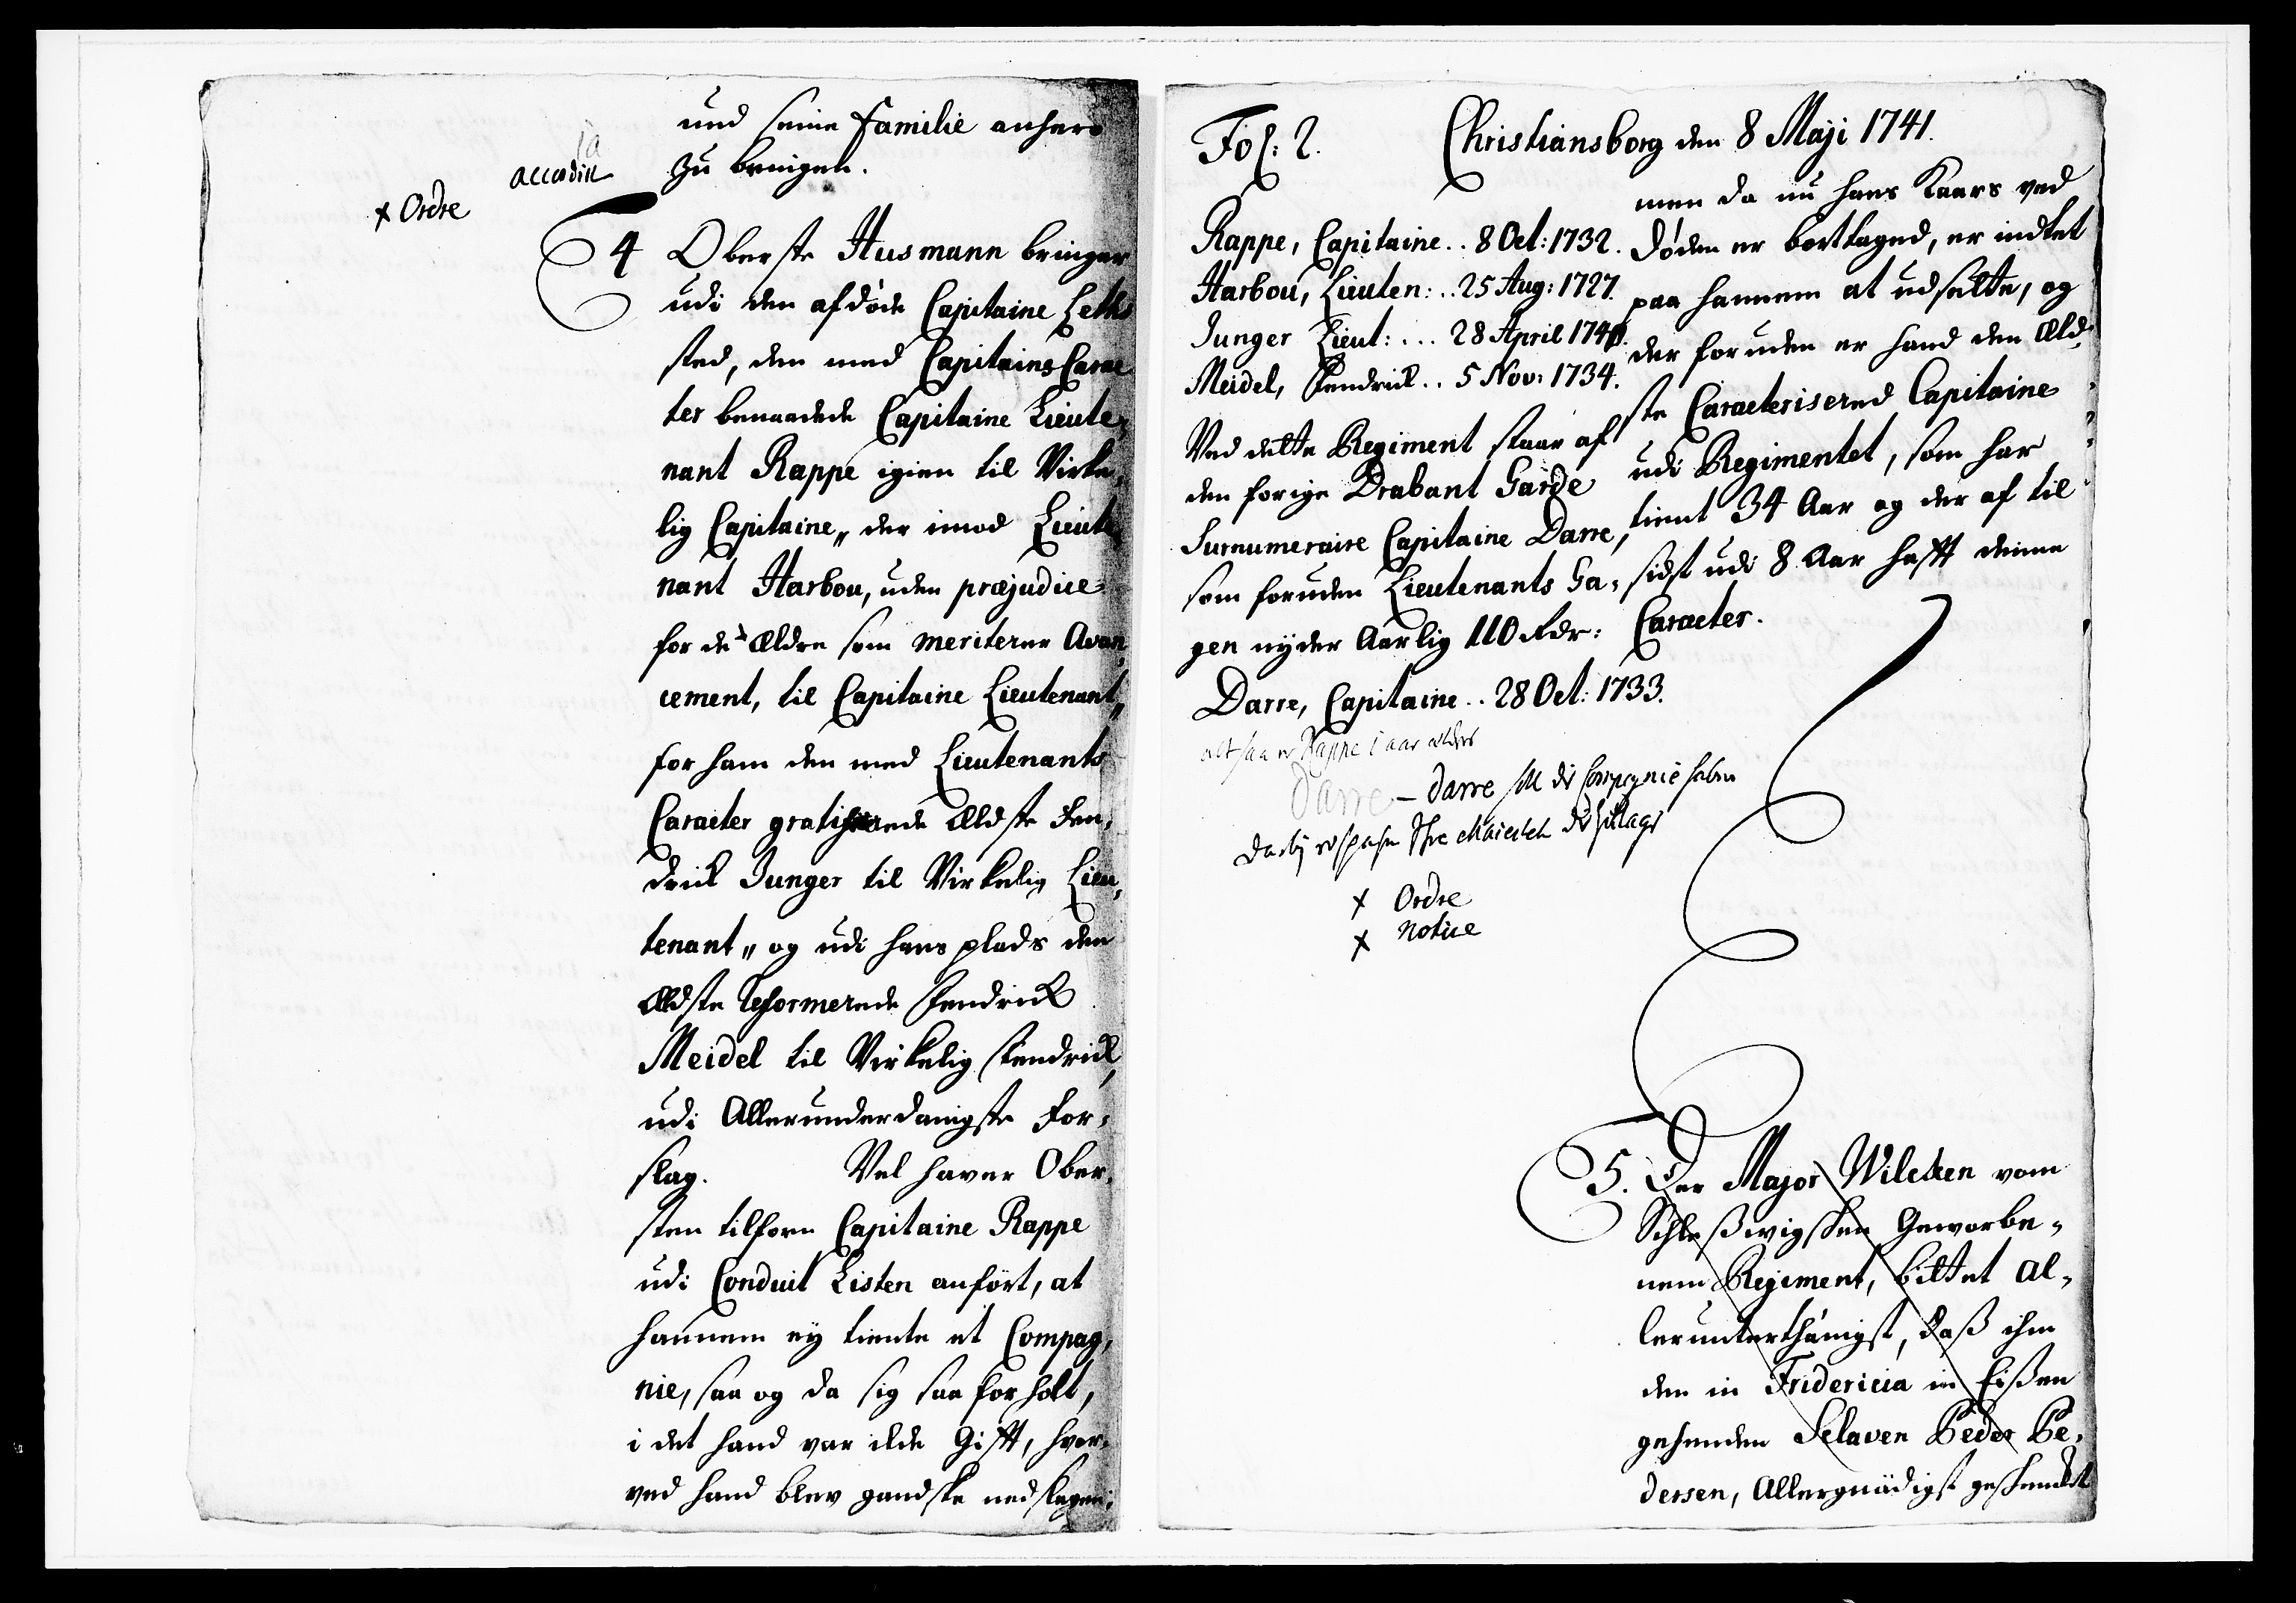 und seine Familie anhero
zu bringen.
ja
accordirt
x Ordre
4 Oberste Husmann bringer
udi den afdøde Capitaine Leths
sted, den med Capitains Carac
ter benaadede Capitaine Lieute,
nant Rappe igien til Virke,
lig Capitaine„ der imod Lieute,
nant Harbou, uden præjudice
for de ældre som meriterer Avan,
cement, til Capitaine Lieutenant„
for ham den med Lieutenants
Caracter gratificerede Ældste Fen,
drick Junger til Virkelig Lieu,
tenant„ og udi hans plads den
Ældste Reformerede Fendrick
Meidel til Virkelig Fendrick,
udi Allerunderdanigste For,
slag. Vel haver Ober,
sten tilforn Capitaine Rappe
udi Conduit Listen anført, at
hannem ey tiente et Compag,
nie, saa og da sig saa forholt,
i det hand var ilde Gift, hvor,
ved hand blev gandske nedslagen;
Fol: 2. Christiansborg den 8 Maji 1741.
Rappe, Capitaine.. 8 Oct: 1732.
Harbou, Lieuten:.. 25 Aug: 1727.
Junger Lieut:... 28 April 1740.
Meidel, Fendrick.. 5 Nov: 1734.
Ved dette Regiment staar af
den forige Drabant Garde
Surnumeraire Capitaine Darre,
som foruden Lieutenants Ga,
gen nyder Aarlig 110 Rdr:
Darre, Capitaine.. 28 Oct: 1733.
alt saa er Rappe 1 aar ældre
Darre – Darre soll die Compagnie haben
Ihre Maiestet
x Ordre
x Notice
men da nu hans Kaars ved
Døden er borttaged, er indtet
paa hannem at udsætte, og
der foruden er hand den Æld,
ste Caracterisered Capitaine
udi Regimentet, som har
tient 34 Aar og der af til
sidst udi 8 Aar hafft denne
Caracter.
5. Der Major Wilcken vom
Schleßwigschen Geworbe,
nem Regiment, bittet al,
lerunterthänigst, daß ihm
den in Fridericia in Eißen
gehenden Sclaven Peder Pe,
dersen, Allergnädigst geschenckt